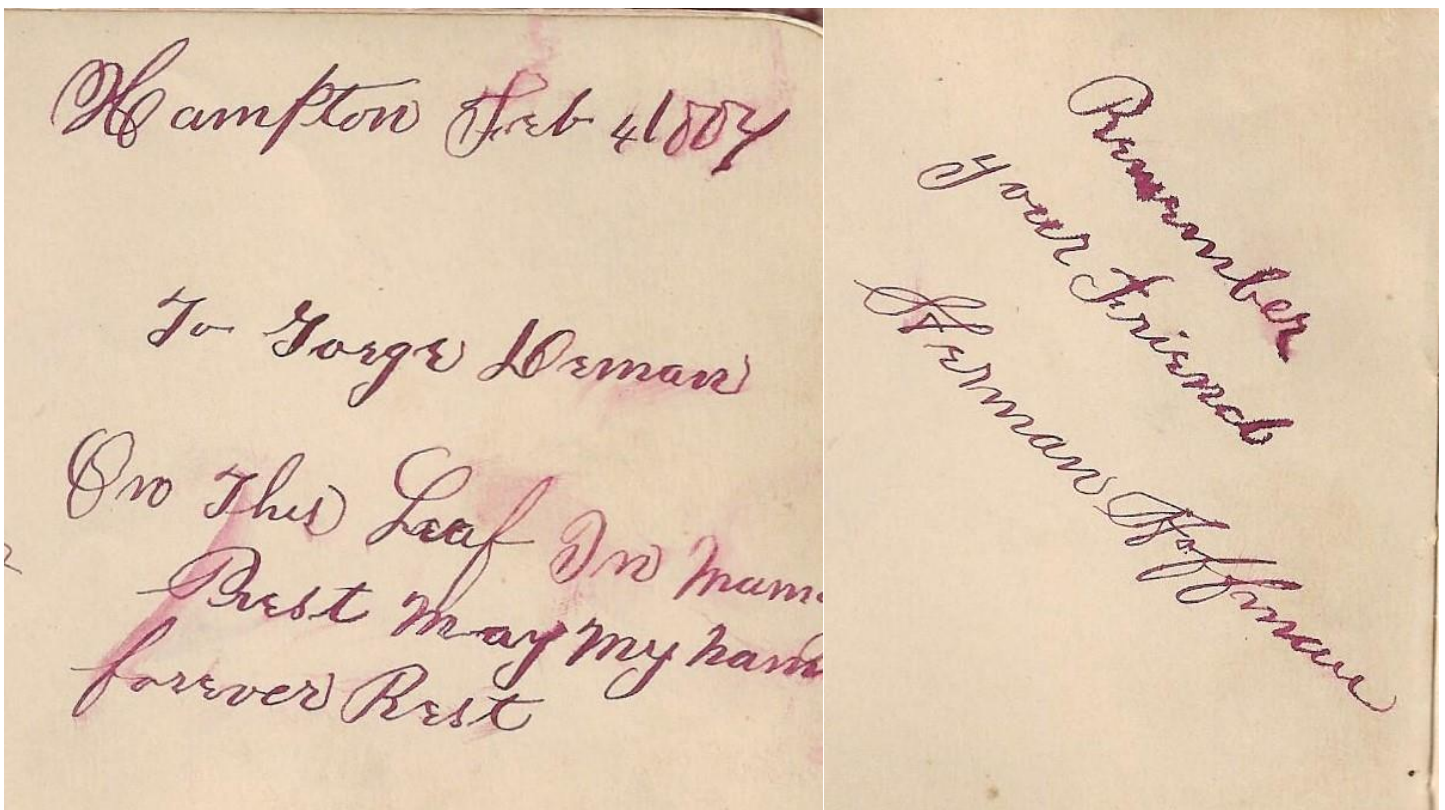 Hampton Feb 4 1887
To Gorge Deman
On This Leaf In
Prest May My
forever Rest
Remember
Your Friend
Herman Hoffman